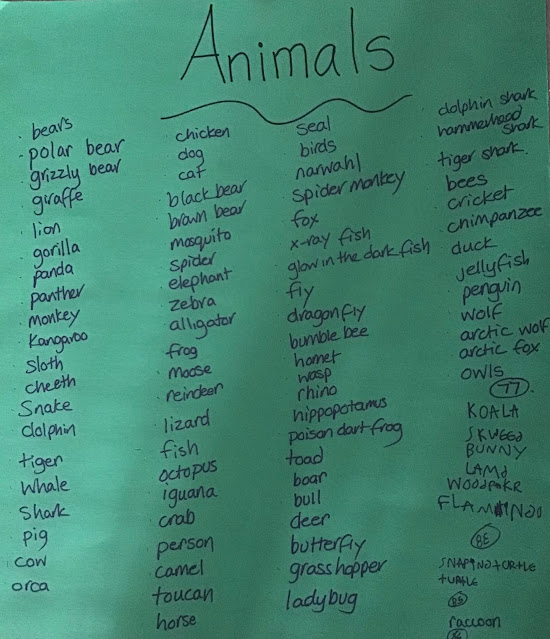 Animals
bears
polar bear
grizzly bear
giraffe
lion
gorilla
panda
panther
monkey
Kangaroo
Sloth
cheeth
Snake
dolphin
tiger
whale
Shark
pig
cow
orca
chicken
dog
cat
black bear
brown bear
mosquito
spider
elephant
zebra
alligator
frog
moose
reindeer
lizard
fish
octopus
iguana
crab
person
camel
toucan
horse
seal
birds
narwahl
spider monkey
fox
x-ray fish
glow in the dark fish
fly
dragonfly
bumble bee
hornet
wasp
rhino
hippopotamus
poison dart frog
toad
boar
bull
deer
butterfly
grasshopper
ladybug
dolphin shark
hammerhead
shark
tiger shark
bees
cricket
chimpanzee
duck
jellyfish
penguin
wolf
arctic wolf
arctic fox
owls
77
KOALA
BUNNY
LAMA
TURTLE
raccoon